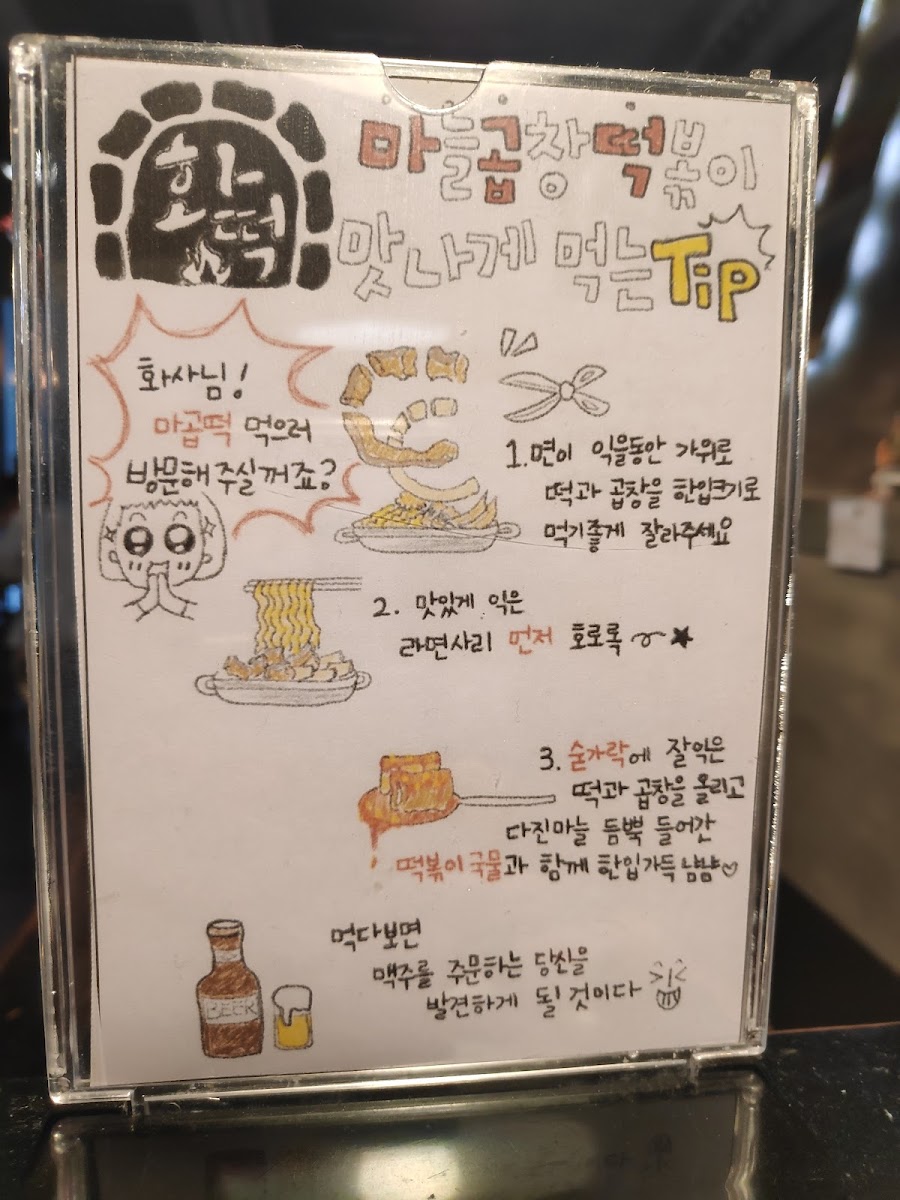 화떡
마늘곱창떡볶이
맛나게 먹는 Tip
화사님!
마곱떡 먹으러
방문해주실꺼죠?
1. 면이 익을동안 가위로
떡과 곱창을 한입크기로
먹기좋게 잘라주세요
2. 맛있게 익은
라면사리 먼저 호로록
3. 숟가락에 잘익은
떡과 곱창을 올리고
다진마늘 듬뿍 들어간
떡볶이국물과 함께 한입가득 냠냠♡
먹다보면
맥주를 주문하는 당신을
발견하게 될 것이다
BEER